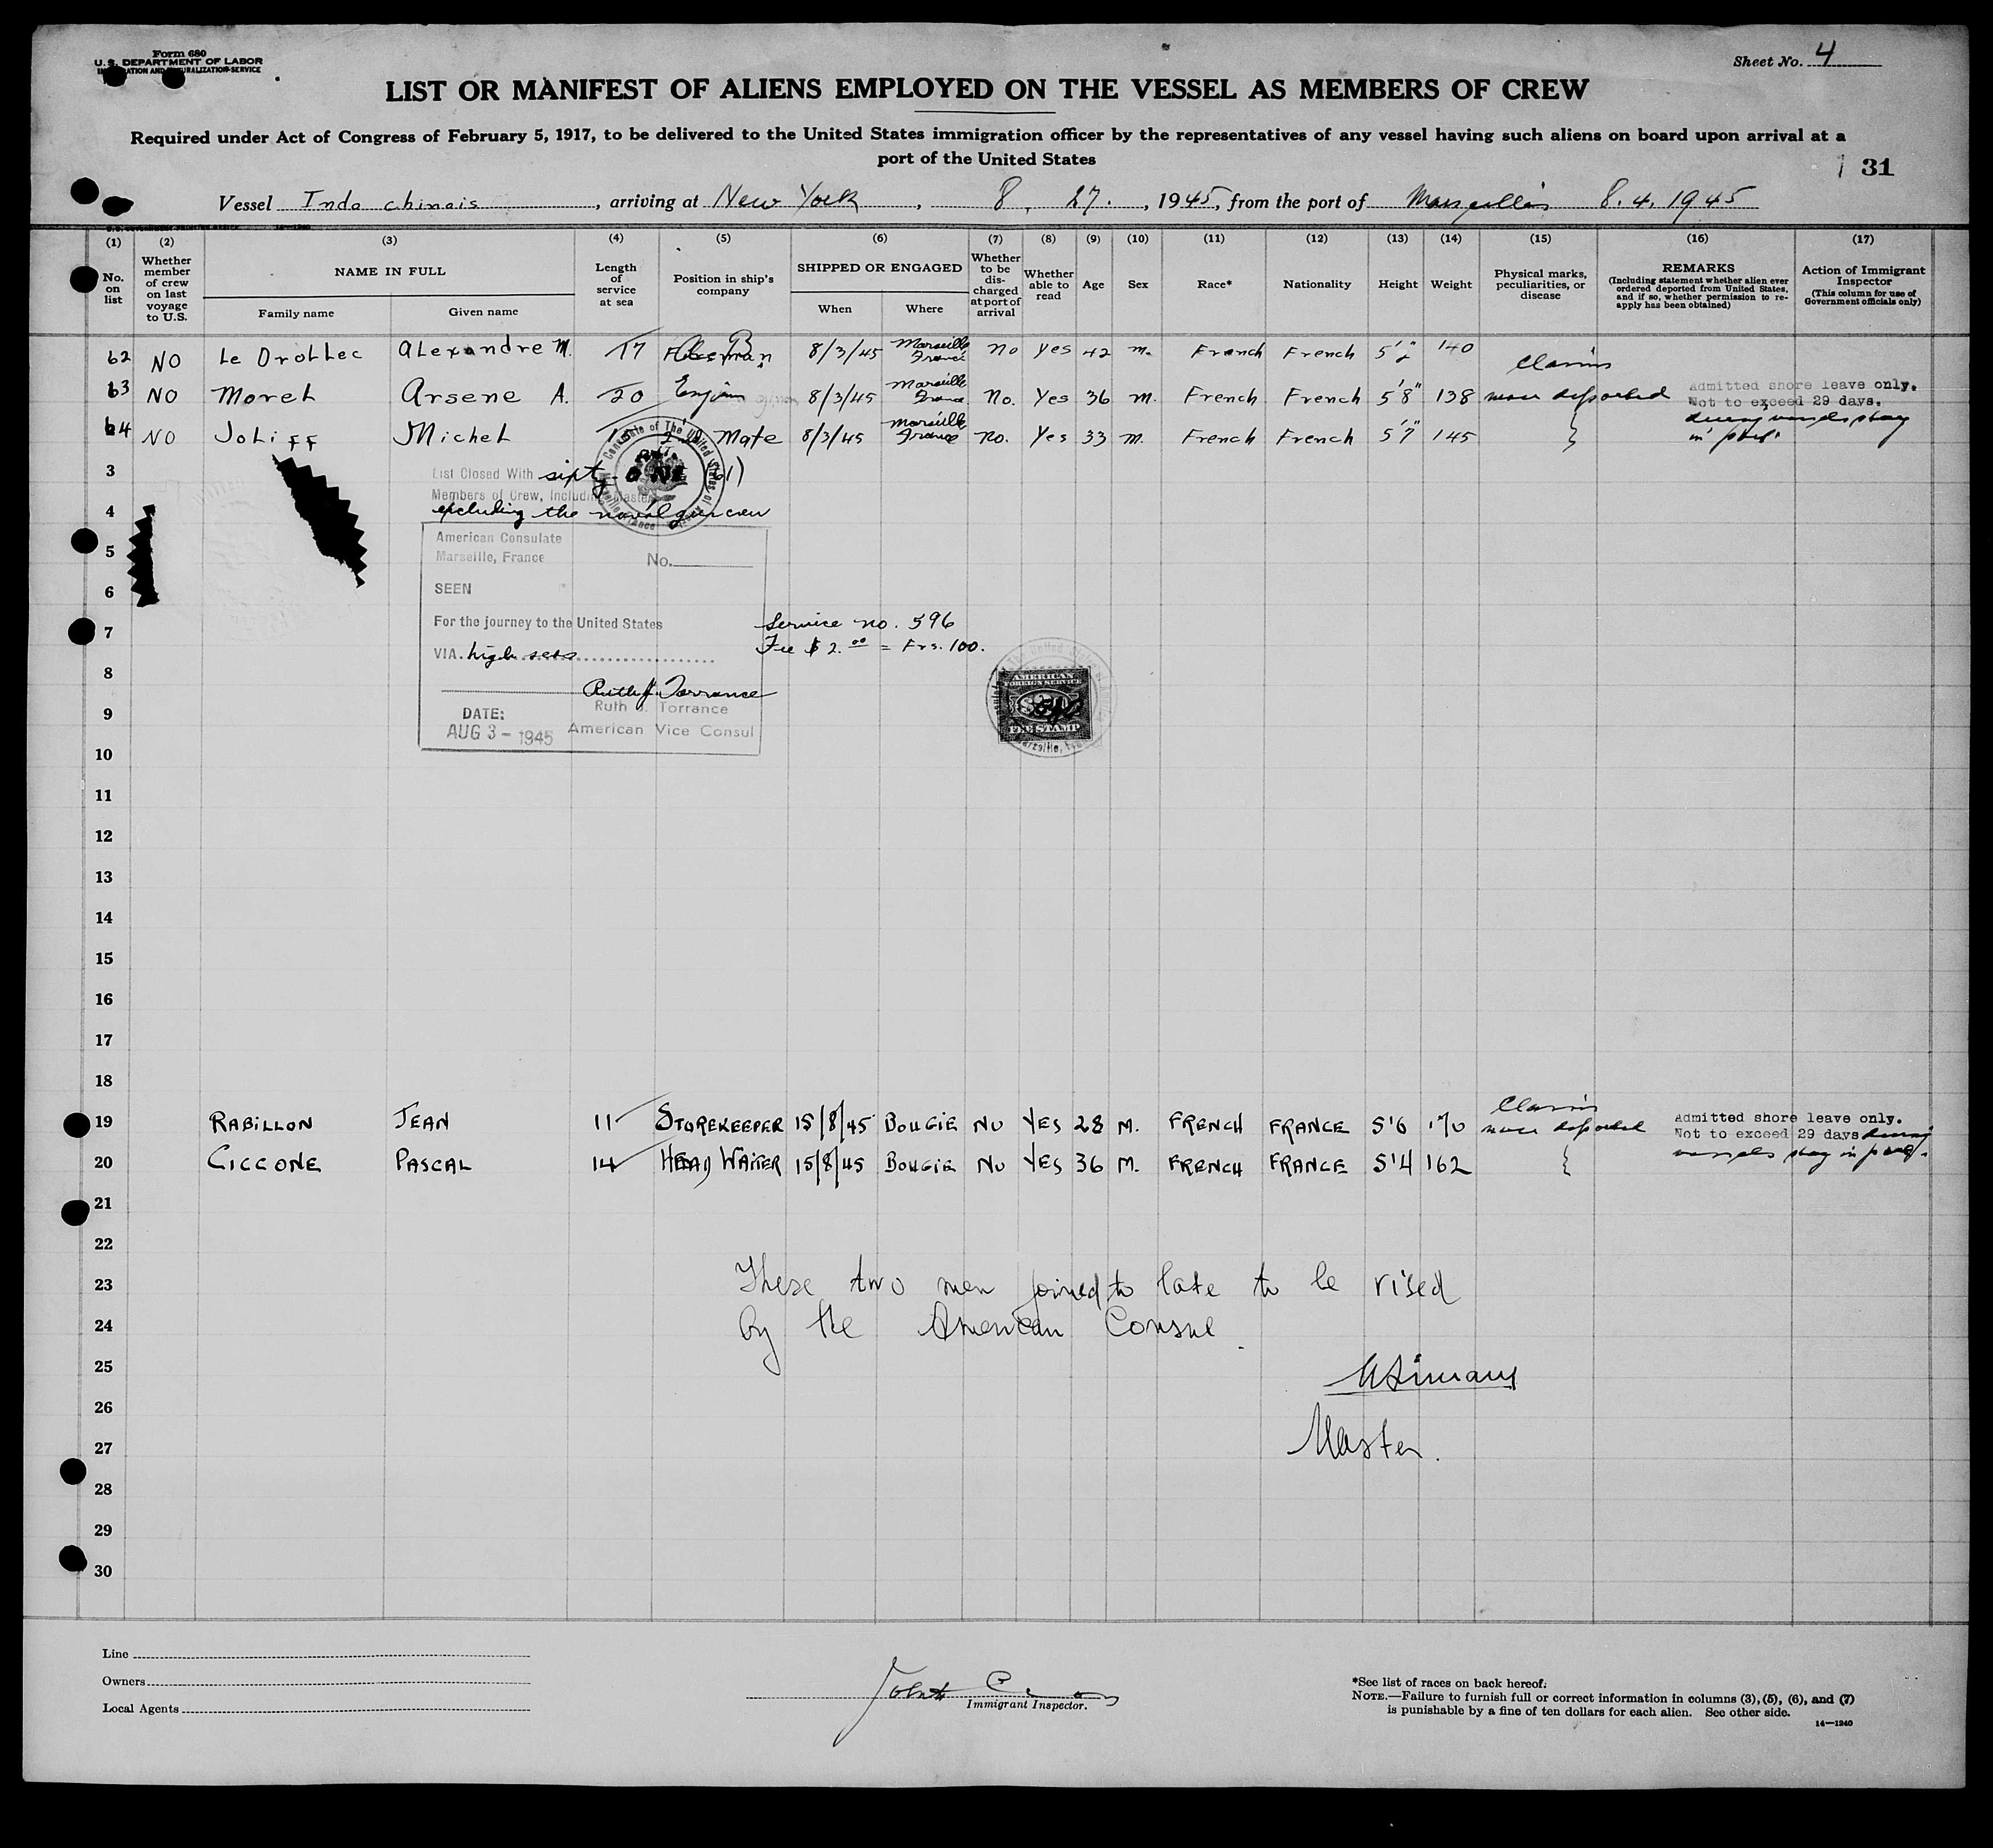 Form 680
U. S. DEPARTMENT OF LABOR
Sheet No. 4
LIST OR MANIFEST OF ALIENS EMPLOYED ON THE VESSEL AS MEMBERS OF CREW
Required under Act of Congress of February 5, 1917, to be delivered to the United States immigration officer by the representatives of any vessel having such aliens on board upon arrival at a
port of the United States
31
Vessel Indo chinais, arriving at New York, 8, 27., 1945, from the port of Marseilles 8.4.1945
(1) (2) (3) (4) (5) (6) (7) (8) (9) (10) (11) (12) (13) (14) (15) (16) (17)
No. on list
Whether member of crew on last voyage to U.S.
NAME IN FULL
Family name
Given name
Length of service at sea
Position in ship's company
SHIPPED OR ENGAGED
When
Where
Whether to be discharged at port of arrival
Whether able to read
Age
Sex
Race*
Nationality
Height
Weight
Physical marks, peculiarities, or disease
REMARKS
(Including statement whether alien ever ordered deported from United States, and if so, whether permission to reapply has been obtained)
Action of Immigrant Inspector
(This column for use of Government officials only)
62 NO Le Drollec Alexandre M. 17 8/3/45 Marseille France no yes 42 m. French French 5'2" 140
Claims
63 NO Moret Arsene A. 20 8/3/45 Marseille France No. Yes 36 m. French French 5'8" 138 never deported
Admitted shore leave only.
Not to exceed 29 days.
during vessels stay
in port.
64 NO Joliff Michel 2 Mate 8/3/45 Marseille France no. Yes 33 m. French French 5'7" 145
3
List Closed With sixty-ONE (61)
Members of Crew, Including Master
4
excluding the naval gun crew
American Consulate
Marseille, France
No.
5
SEEN
6
For the journey to the United States
7
VIA. high seas
Service no. 596
Fee $ 2.00 = Frs. 100.
8
Ruth J. Torrance
Ruth J. Torrance
American Vice Consul
9
DATE:
AUG 3 - 1945
AMERICAN
FOREIGN SERVICE
FEE STAMP
10
11
12
13
14
15
16
17
18
Claims
19 RABILLON JEAN 11 STOREKEEPER 15/8/45 BOUGIE NO YES 28 M. FRENCH FRANCE 5'6 170 never deported
Admitted shore leave only.
Not to exceed 29 days during
vessels stay in port.
20 CICCONE PASCAL 14 HEAD WAITER 15/8/45 BOUGIE NO YES 36 M. FRENCH FRANCE 5'4 162
21
22
23 These two men joined to late to be vised
24 by the American Consul.
25
26
27 Master.
28
29
30
Line
Owners
Local Agents
Immigrant Inspector.
*See list of races on back hereof.
NOTE.—Failure to furnish full or correct information in columns (3), (5), (6), and (7)
is punishable by a fine of ten dollars for each alien. See other side.
14—1240